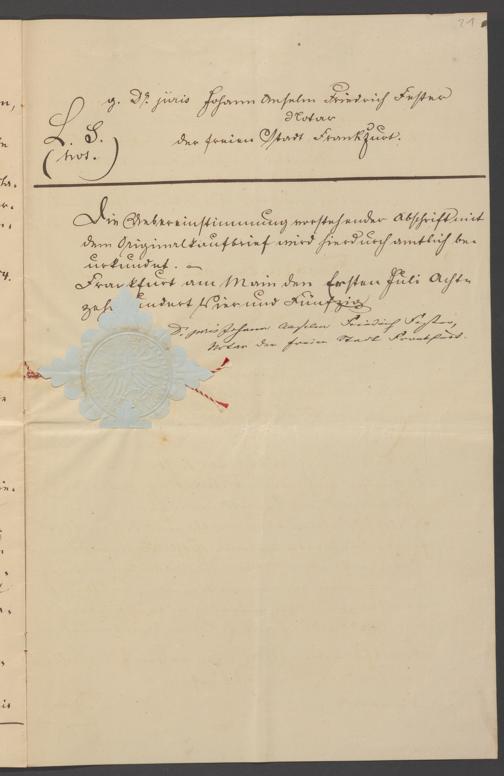 21
g. Dr. juris Johann Anselm Friedrich Fester
Notar
der freien Stadt Frankfurt.
L. S.
(Not.)
Die Uebereinstimmung vorstehender Abschrift mit
dem Originalkaufbrief wird hierdurch amtlich be-
urkundet. —
Frankfurt am Main den Ersten Juli Acht-
zehnhundert Vier und Fünfzig
Dr. juris Johann Anselm Friedrich Fester,
Notar der freien Stadt Frankfurt.